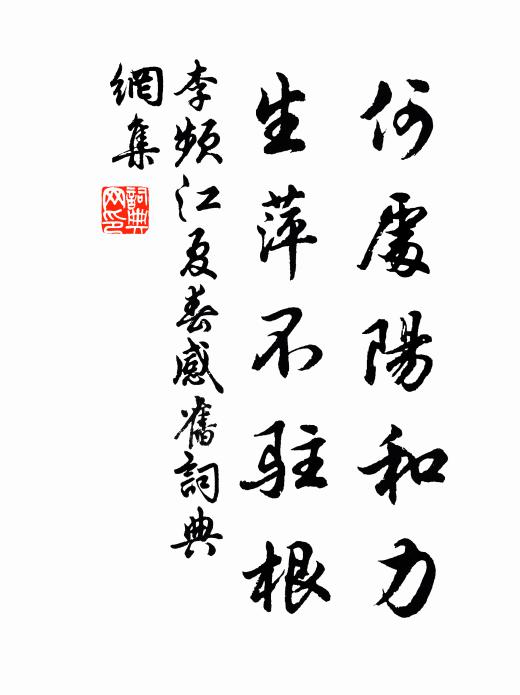 何處陽和力
生萍不駐根
李頻江夏春感舊詞典
網集
詞典
网印